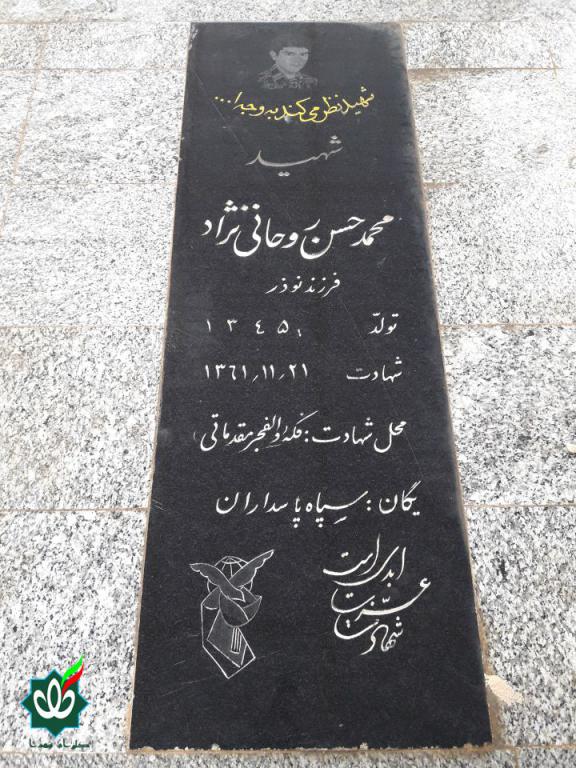 شهید نظر می کند به وجه ا...
شهید
محمد حسن روحانی نژاد
فرزند نوذر
تولّد ۱۳۴۵
شهادت ۱۳۶۱٫۱۱٫۲۱
محل شهادت : فکه (والفجر مقدماتی)
یگان : سپاه پاسداران
شهادت عزت ابدی است